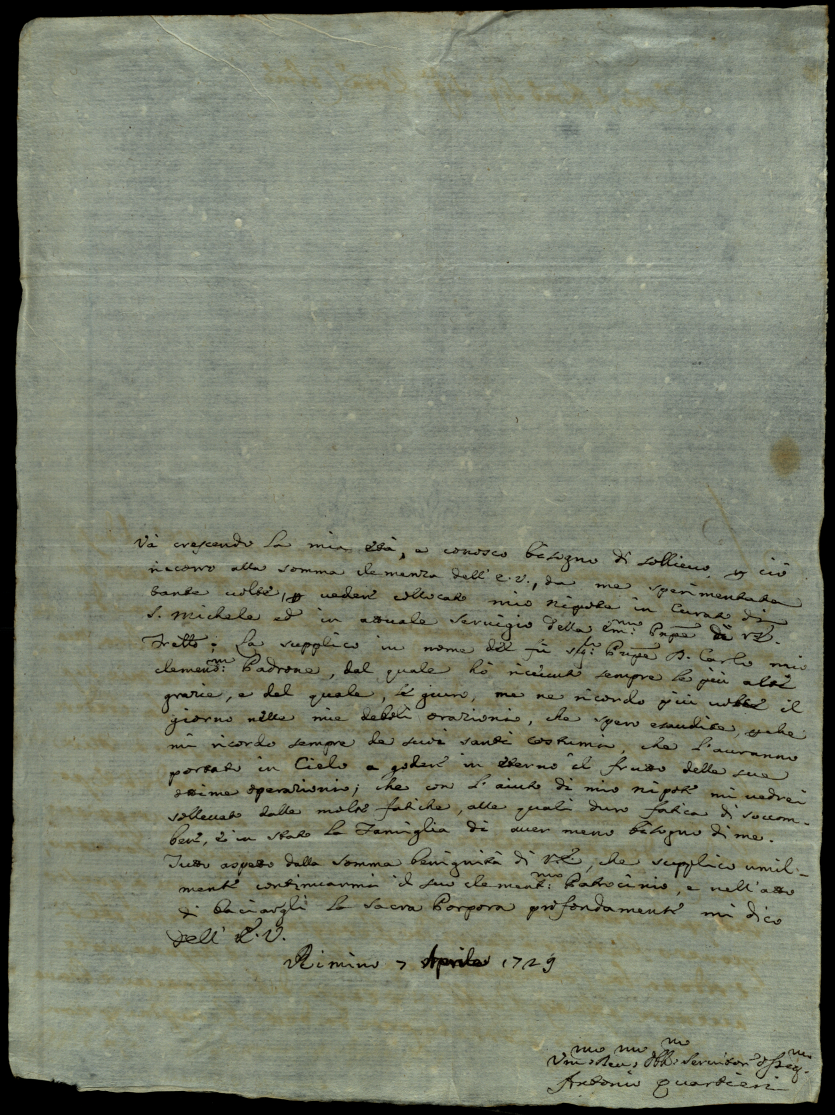 Và crescendo la mia età, e conosco bisogno di sollievo, p ciò
ricorro alla somma clemenza dell' E.V., da me sperimentata
tante volte, p veder collocato mio nipote in Curato di
S. Michele ed in attuale servigio della
La supplico in nome del fù D. Carlo mio
clement:mo Padrone, dal quale hò ricevuto sempre le più alte
grazie, e del quale, le giuro, me ne ricordo più volte il
giorno nelle mie deboli orazioni, che spero esaudite, pche
mi ricordo sempre de suoi santi costumi, che l'auranno
portato in Cielo a godere in eterno il frutto delle sue
ottime operazioni; che con l'aiuto di mio nipote mi vedrei
sollevato dalle molte fatiche, alle quali duro fatica di soccom-
bere, è in stato la Famiglia di aver meno bisogno di me.
Tutto aspetto dalla somma benignità di V.E., che supplico umil-
mente continuarmi il suo clement:mo Patrocinio, e nell'atto
di baciargli la Sacra Porpora profondamente mi dico
Dell' E.V.
Rimino 7 Aprile 1729
Vmo Devmo Obbmo Servitor
Antonio Quartieri